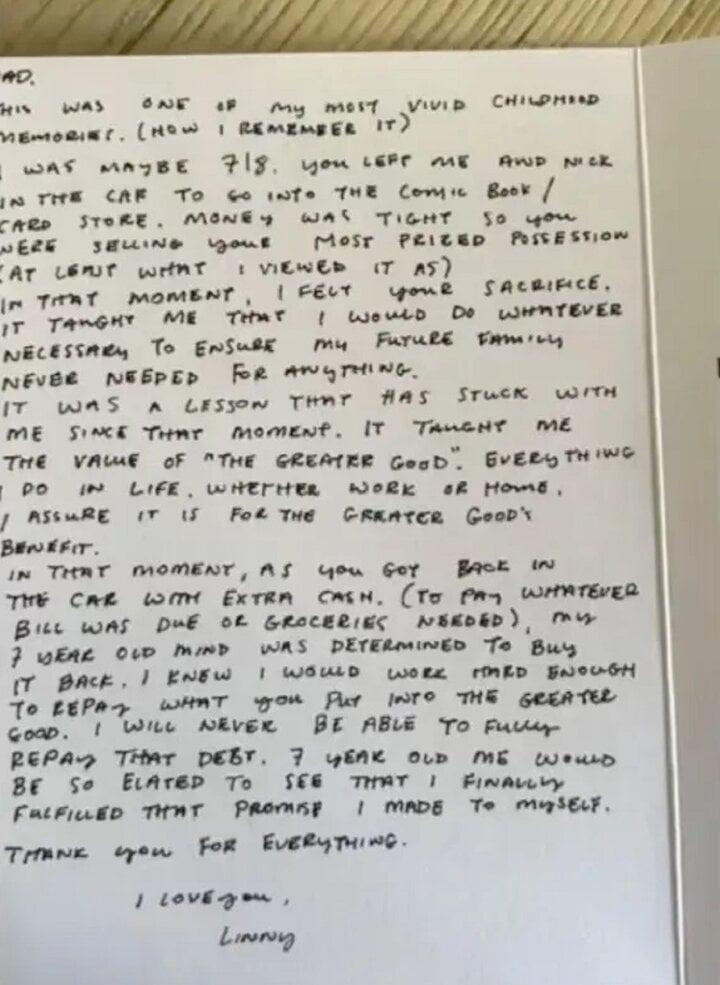 AD.
HIS WAS ONE OF MY MOST VIVID CHILDHOOD
MEMORIES. (HOW I REMEMBER IT)
I WAS MAYBE 7/8. YOU LEFT ME AND NICK
IN THE CAR TO GO INTO THE COMIC BOOK /
CARD STORE. MONEY WAS TIGHT SO YOU
WERE SELLING YOUR MOST PRIZED POSSESSION
(AT LEAST WHAT I VIEWED IT AS)
IN THAT MOMENT, I FELT YOUR SACRIFICE.
IT TAUGHT ME THAT I WOULD DO WHATEVER
NECESSARY TO ENSURE MY FUTURE FAMILY
NEVER NEEDED FOR ANYTHING.
IT WAS A LESSON THAT HAS STUCK WITH
ME SINCE THAT MOMENT. IT TAUGHT ME
THE VALUE OF "THE GREATER GOOD". EVERYTHING
I DO IN LIFE, WHETHER WORK OR HOME,
I ASSURE IT IS FOR THE GREATER GOOD'S
BENEFIT.
IN THAT MOMENT, AS YOU GOT BACK IN
THE CAR WITH EXTRA CASH. (TO PAY WHATEVER
BILL WAS DUE OR GROCERIES NEEDED), MY
7 YEAR OLD MIND WAS DETERMINED TO BUY
IT BACK. I KNEW I WOULD WORK HARD ENOUGH
TO REPAY WHAT YOU PUT INTO THE GREATER
GOOD. I WILL NEVER BE ABLE TO FULLY
REPAY THAT DEBT. 7 YEAR OLD ME WOULD
BE SO ELATED TO SEE THAT I FINALLY
FULFILLED THAT PROMISE I MADE TO MYSELF.
THANK YOU FOR EVERYTHING.
I LOVE YOU,
LINNY